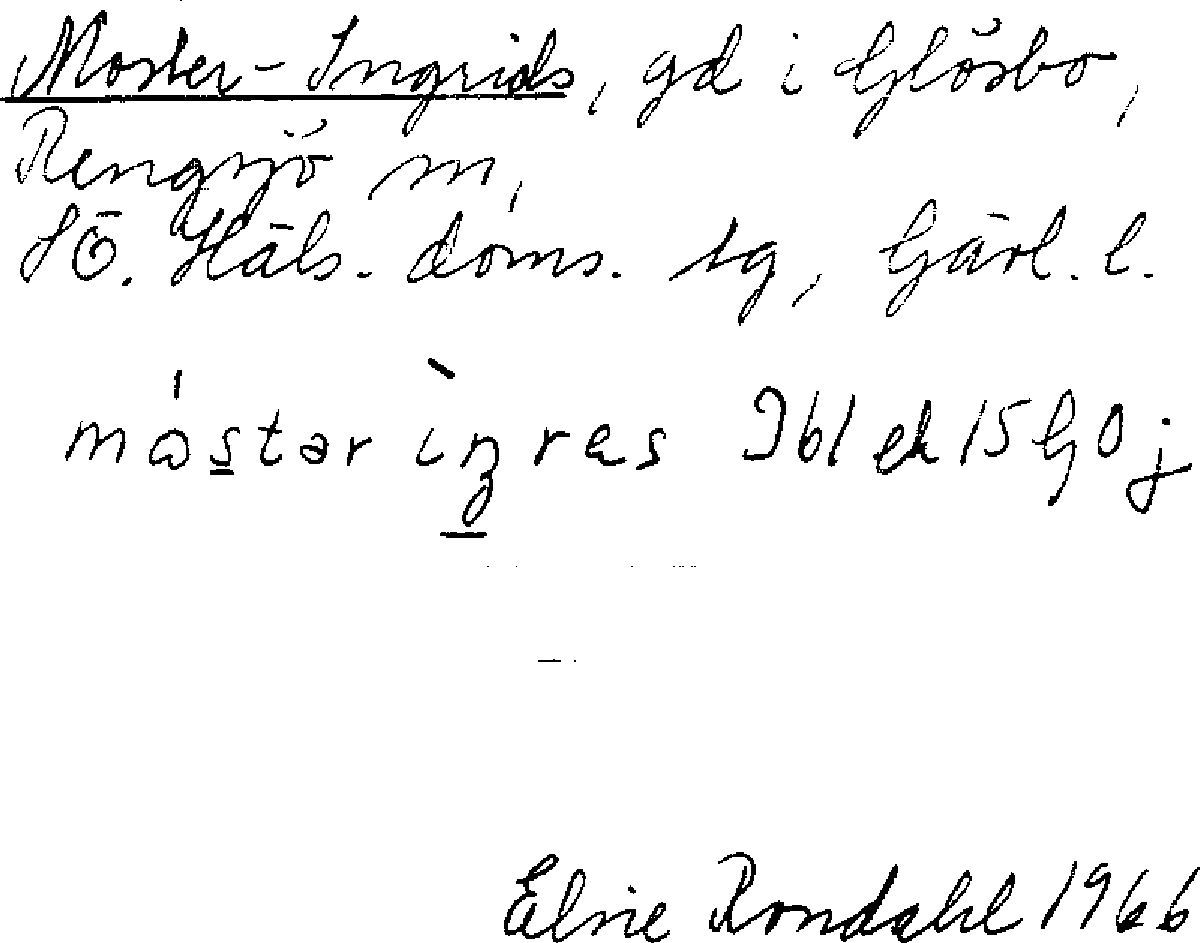 Moster-Ingrids, gd i Glösbo,
Rengsjö sn,
SÖ. Häls. doms. tg, Gävl. l.
mɷ́star ìŋras Ibl ek 15 G 0 j
Elsie Rondahl 1966